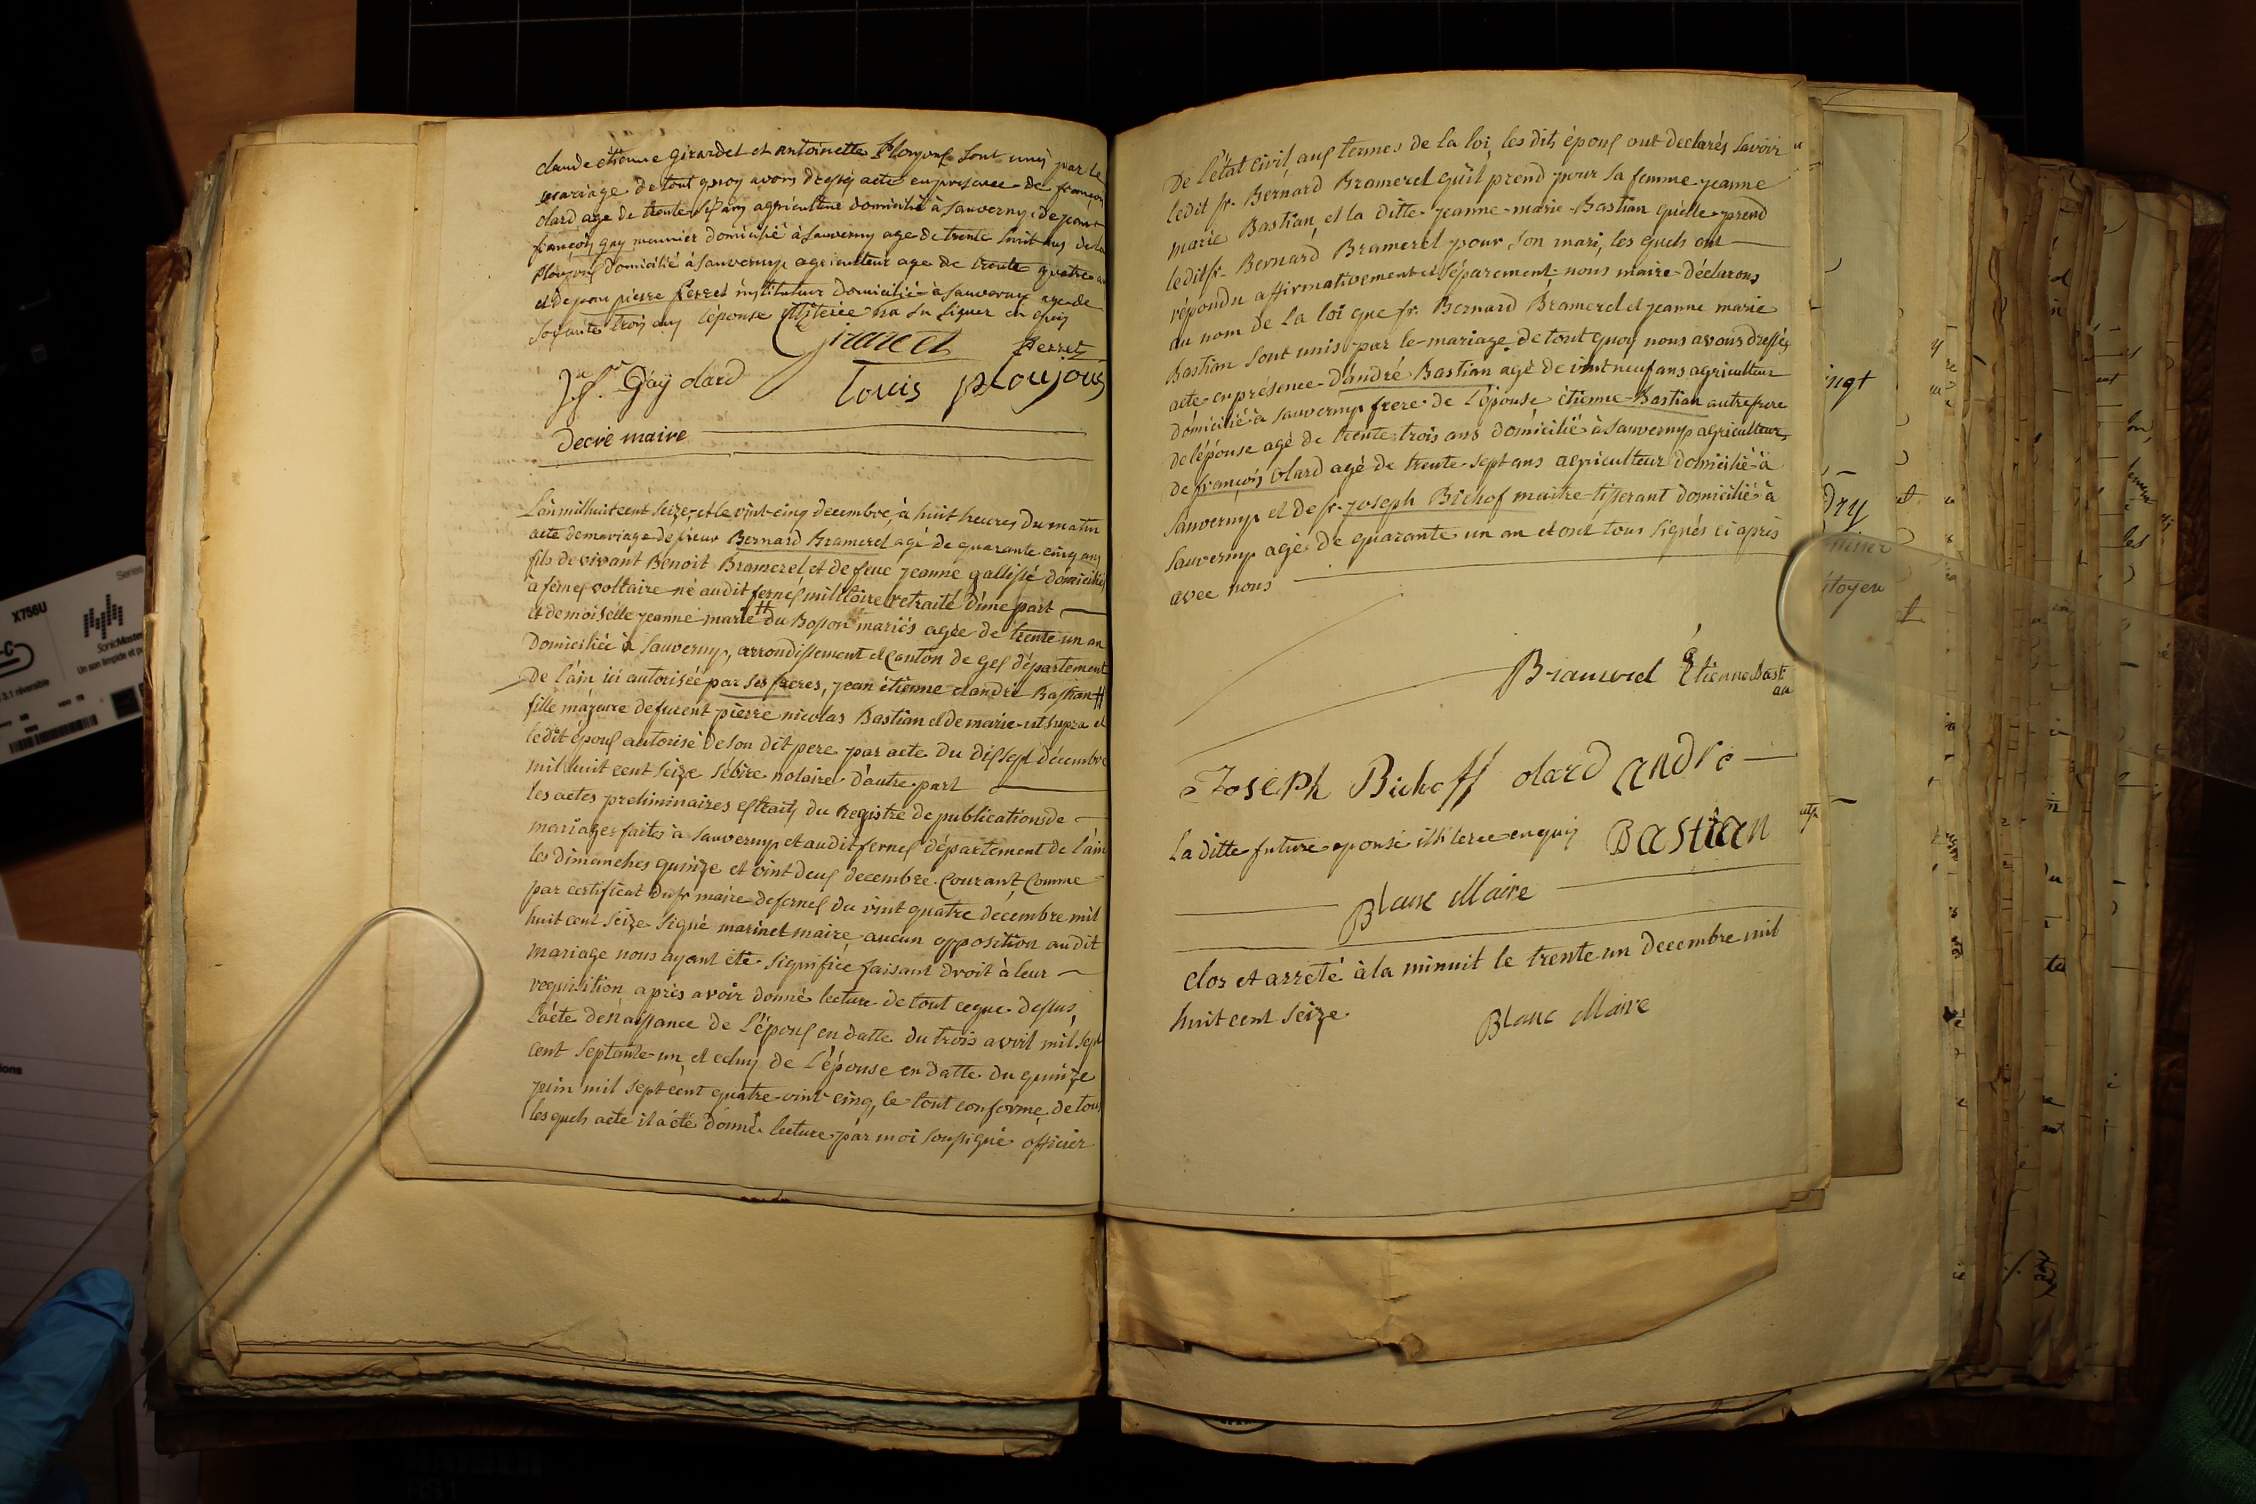 claude étienne girardet et antoinette Ploujoux sont unis par le
mariage de tout quoy avons dressé acte en presence de françois
olard age de trente six ans agriculteur domicilié à sauverny, de jean
françois gay meunier domicilié à sauverny age de trente huit ans de
Ploujoux domicilié à sauverny agriculteur age de trente quatre
et de jean pierre Perret instituteur domicilié à sauverny age de
soixante trois ans l'épouse illiterée n'a su signer en quoy
Girardet Perret
Jn fs. Gay olard
Louis ploujoux
Decré maire
L'an mil huit cent seize, et le vint cinq decembre, à huit heures du matin
acte de mariage de sieur Bernard Bramerel agé de quarante cinq ans
fils de vivant Benoit Bramerel et de feue jeanne gallissé domiciliés
à fernex voltaire né audit fernex militaire retraité d'une part
et demoiselle jeanne marie # du Bosson mariés agée de trente un an
Domiciliée à Sauverny, arrondissement et Canton de Gex département
De l'ain ici autorisée par ses freres, jean étienne et andré Bastian #
fille majeure de furent pierre nicolas Bastian et de marie ut supra et
ledit époux autorisé de son dit pere par acte du dixsept décembre
mil huit cent seize sebire notaire d'autre part
les actes preliminaires extraits du Registre de publications de
mariages faites à sauverny et audit fernex département de l'ain
les dimanches quinze et vint deux decembre Courant, Comme
par certificat du sr maire de fernex du vint quatre décembre mil
huit cent seize signé marinet maire aucun opposition audit
mariage nous ayant été signifiée faisant droit à leur
requisition après avoir donné lecture de tout ce que dessus,
l'acte de naissance de l'époux en datte du trois avril mil sept
cent septante-un, et celuy de l'épouse en datte du quinze
juin mil sept cent quatre-vint cinq, le tout conforme de tous
les quels acte il a été donné lecture par moi soussigné officier
De l'état civil, aux termes de la loi, les dits époux ont declarés savoir
ledit sr. Bernard Bramerel qu'il prend pour sa femme jeanne
marie Bastian, et la ditte jeanne-marie-Bastian qu'elle prend
ledit sr. Bernard Bramerel pour son mari, les quels ont
répondu affirmativement et séparement nous maire déclarons
au nom de la loi que sr. Bernard Bramerel et jeanne marie
Bastian sont unis par le mariage. de tout quoy nous avons dressés
acte en présence d'andré Bastian agé de vint neuf ans agriculteur
domicilié à sauverny frere de l'épouse étienne Bastian autre frere
de l'épouse agé de trente trois ans domicilié à sauverny agriculteur
de françois olard agé de trente-sept ans agriculteur domicilié à
sauverny et de sr. joseph Bichof maitre tisserant domicilié à
sauverny agé de quarante un an et ont tous signés ci après
avec nous
Bramerel Etienne Basti
an
Joseph Bichoff olard andré
La ditte future epouse illiteree en quoy Bastian
Blanc Maire
clos et arreté à la minuit le trente un decembre mil
huit cent seize.
Blanc Maire